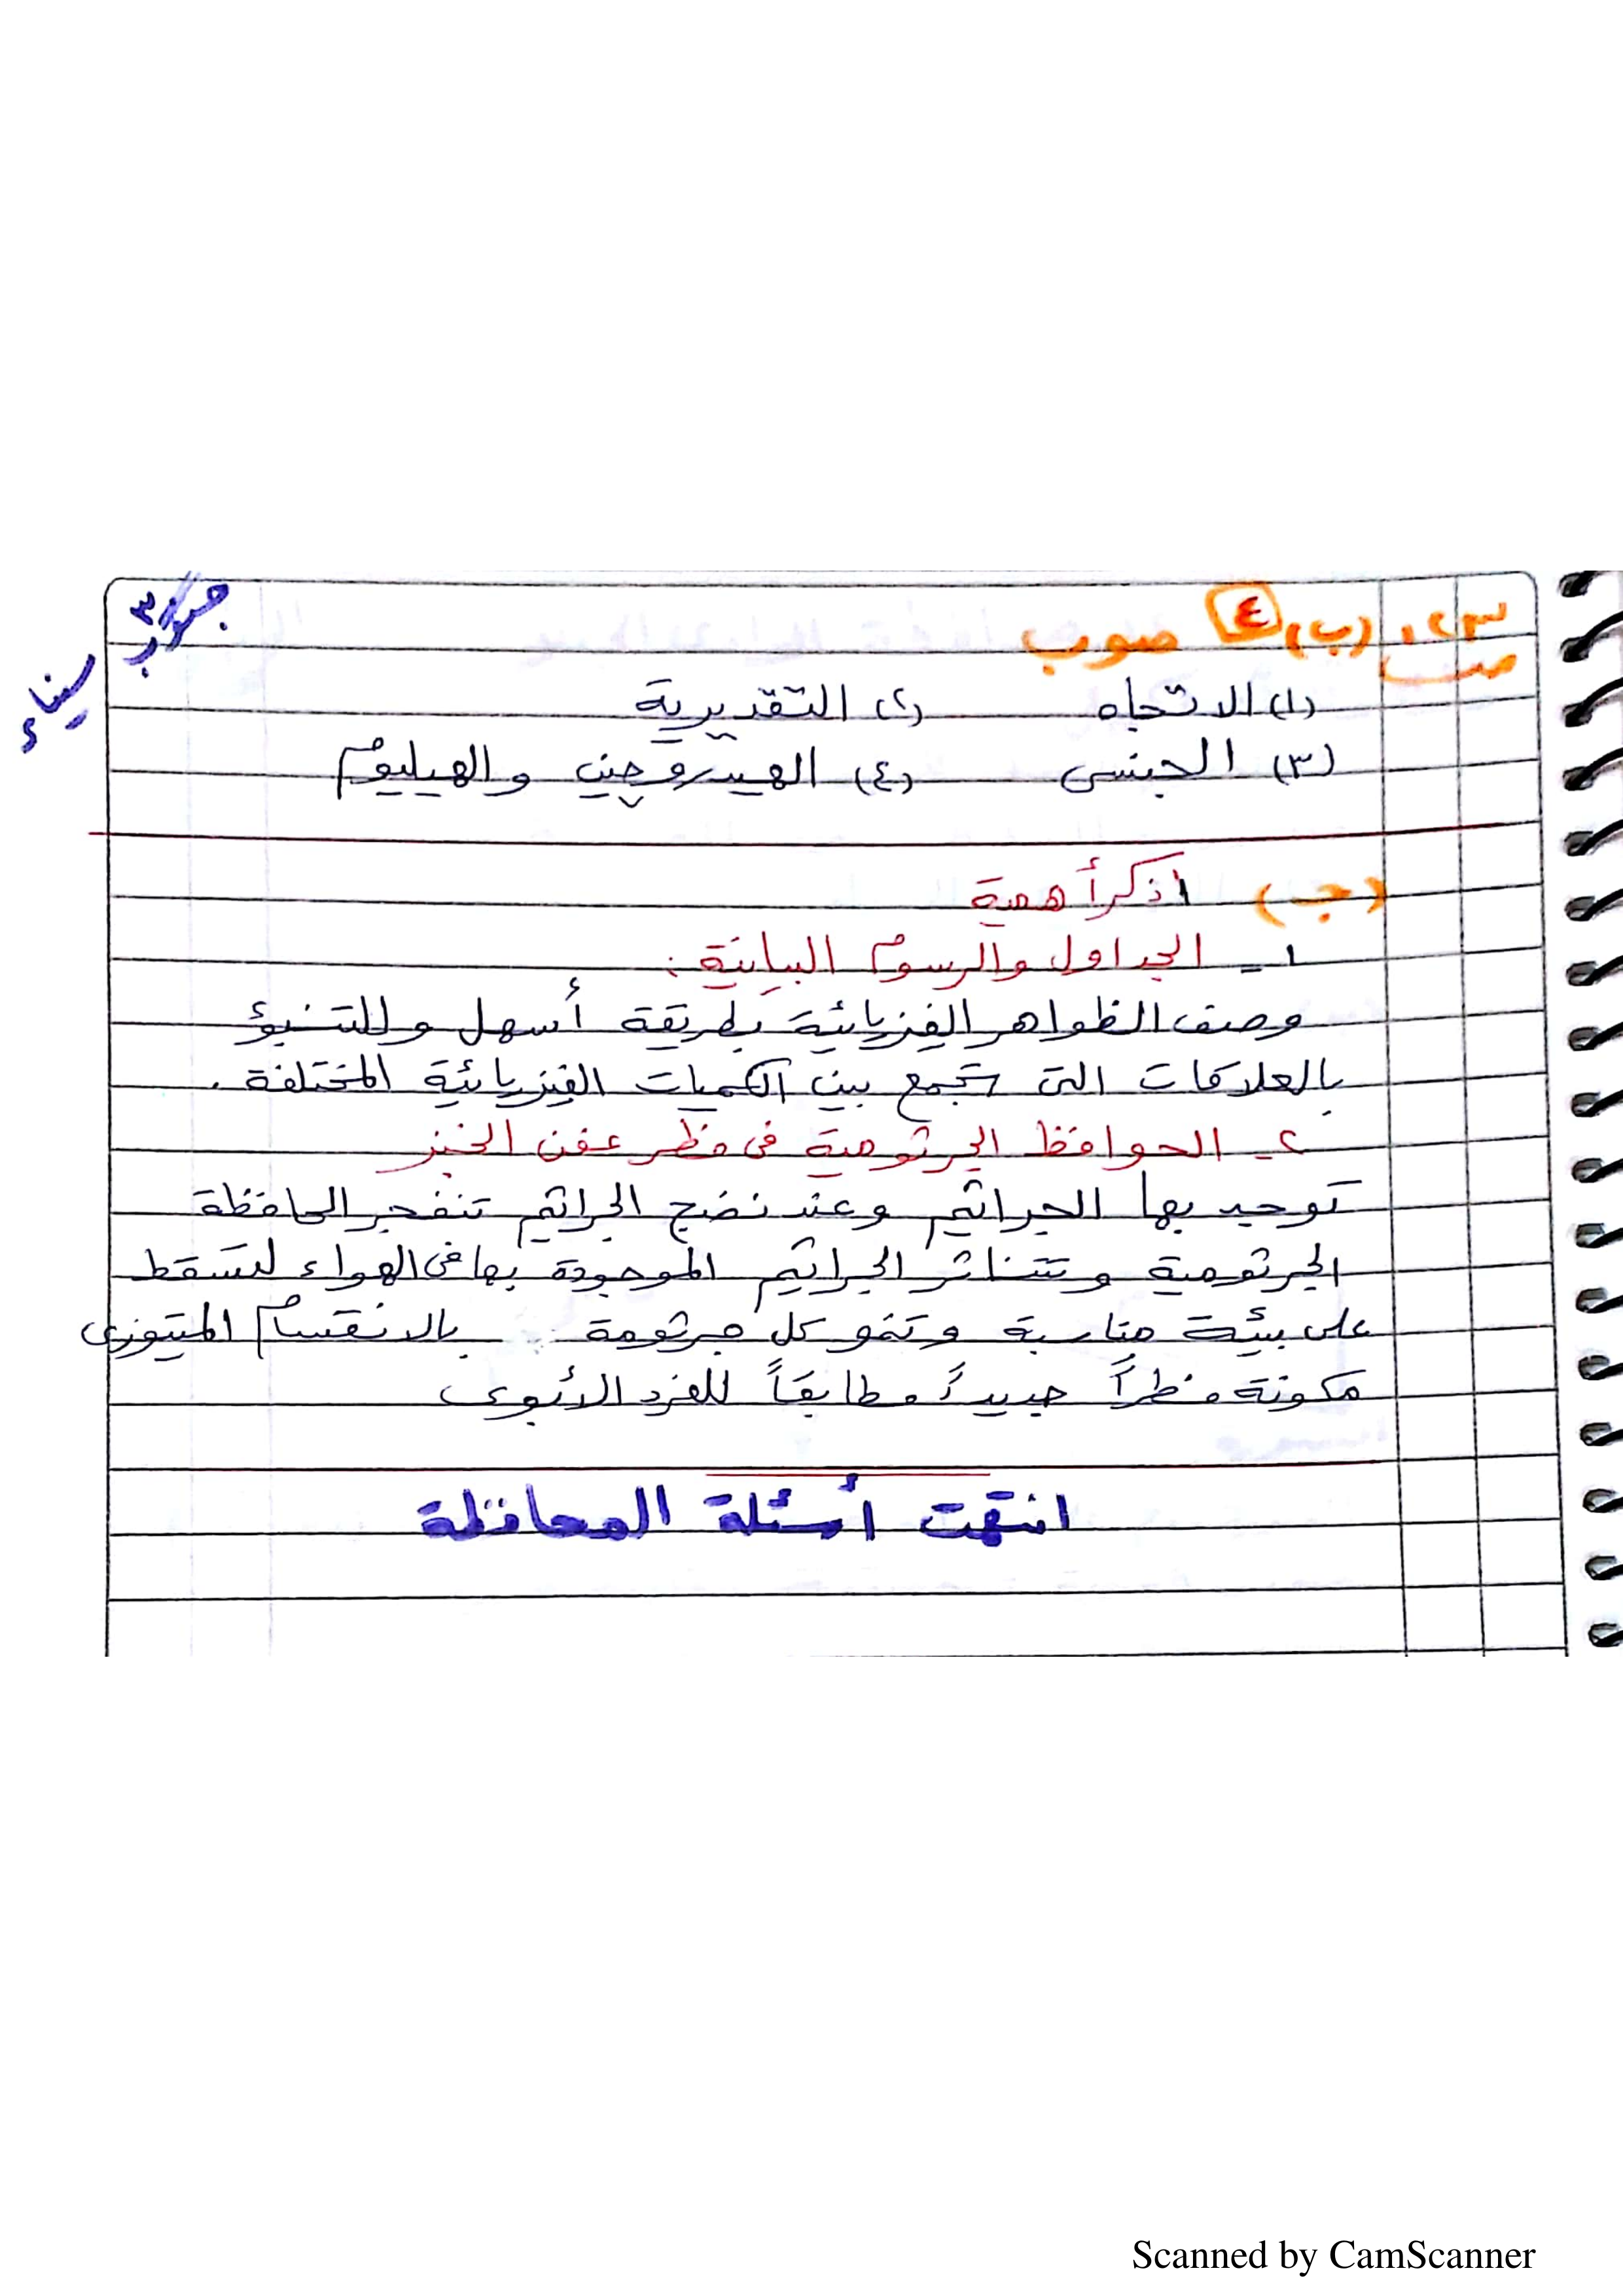 جنوب سيناء ٣
(ب) ٤ صوب
(١) الاتجاه (٢) التقديرية
(٣) الجنسى (٤) الهيدروجين والهيليوم
(ج) اذكر أهمية
١ - الجداول والرسوم البيانية :
وصف الظواهر الفيزيائية بطريقة أسهل وللتنبؤ
بالعلاقات التى تجمع بين الكميات الفيزيائية المختلفة .
٢ - الحوافظ الجرثومية فى فطر عفن الخبز
توجد بها الجراثيم وعند نضج الجراثيم تنفجر الحافظة
الجرثومية وتتناثر الجراثيم الموجودة بها فى الهواء لتسقط
على بيئة مناسبة وتنمو كل جرثومة بالانقسام الميتوزى
مكونة فطراً جديداً مطابقاً للفرد الأبوى
انتهت أسئلة المحافظة
Scanned by CamScanner